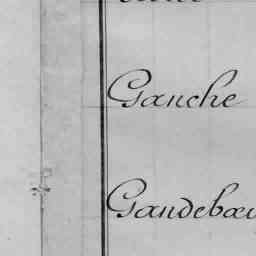 Gauche
Gaudebœu